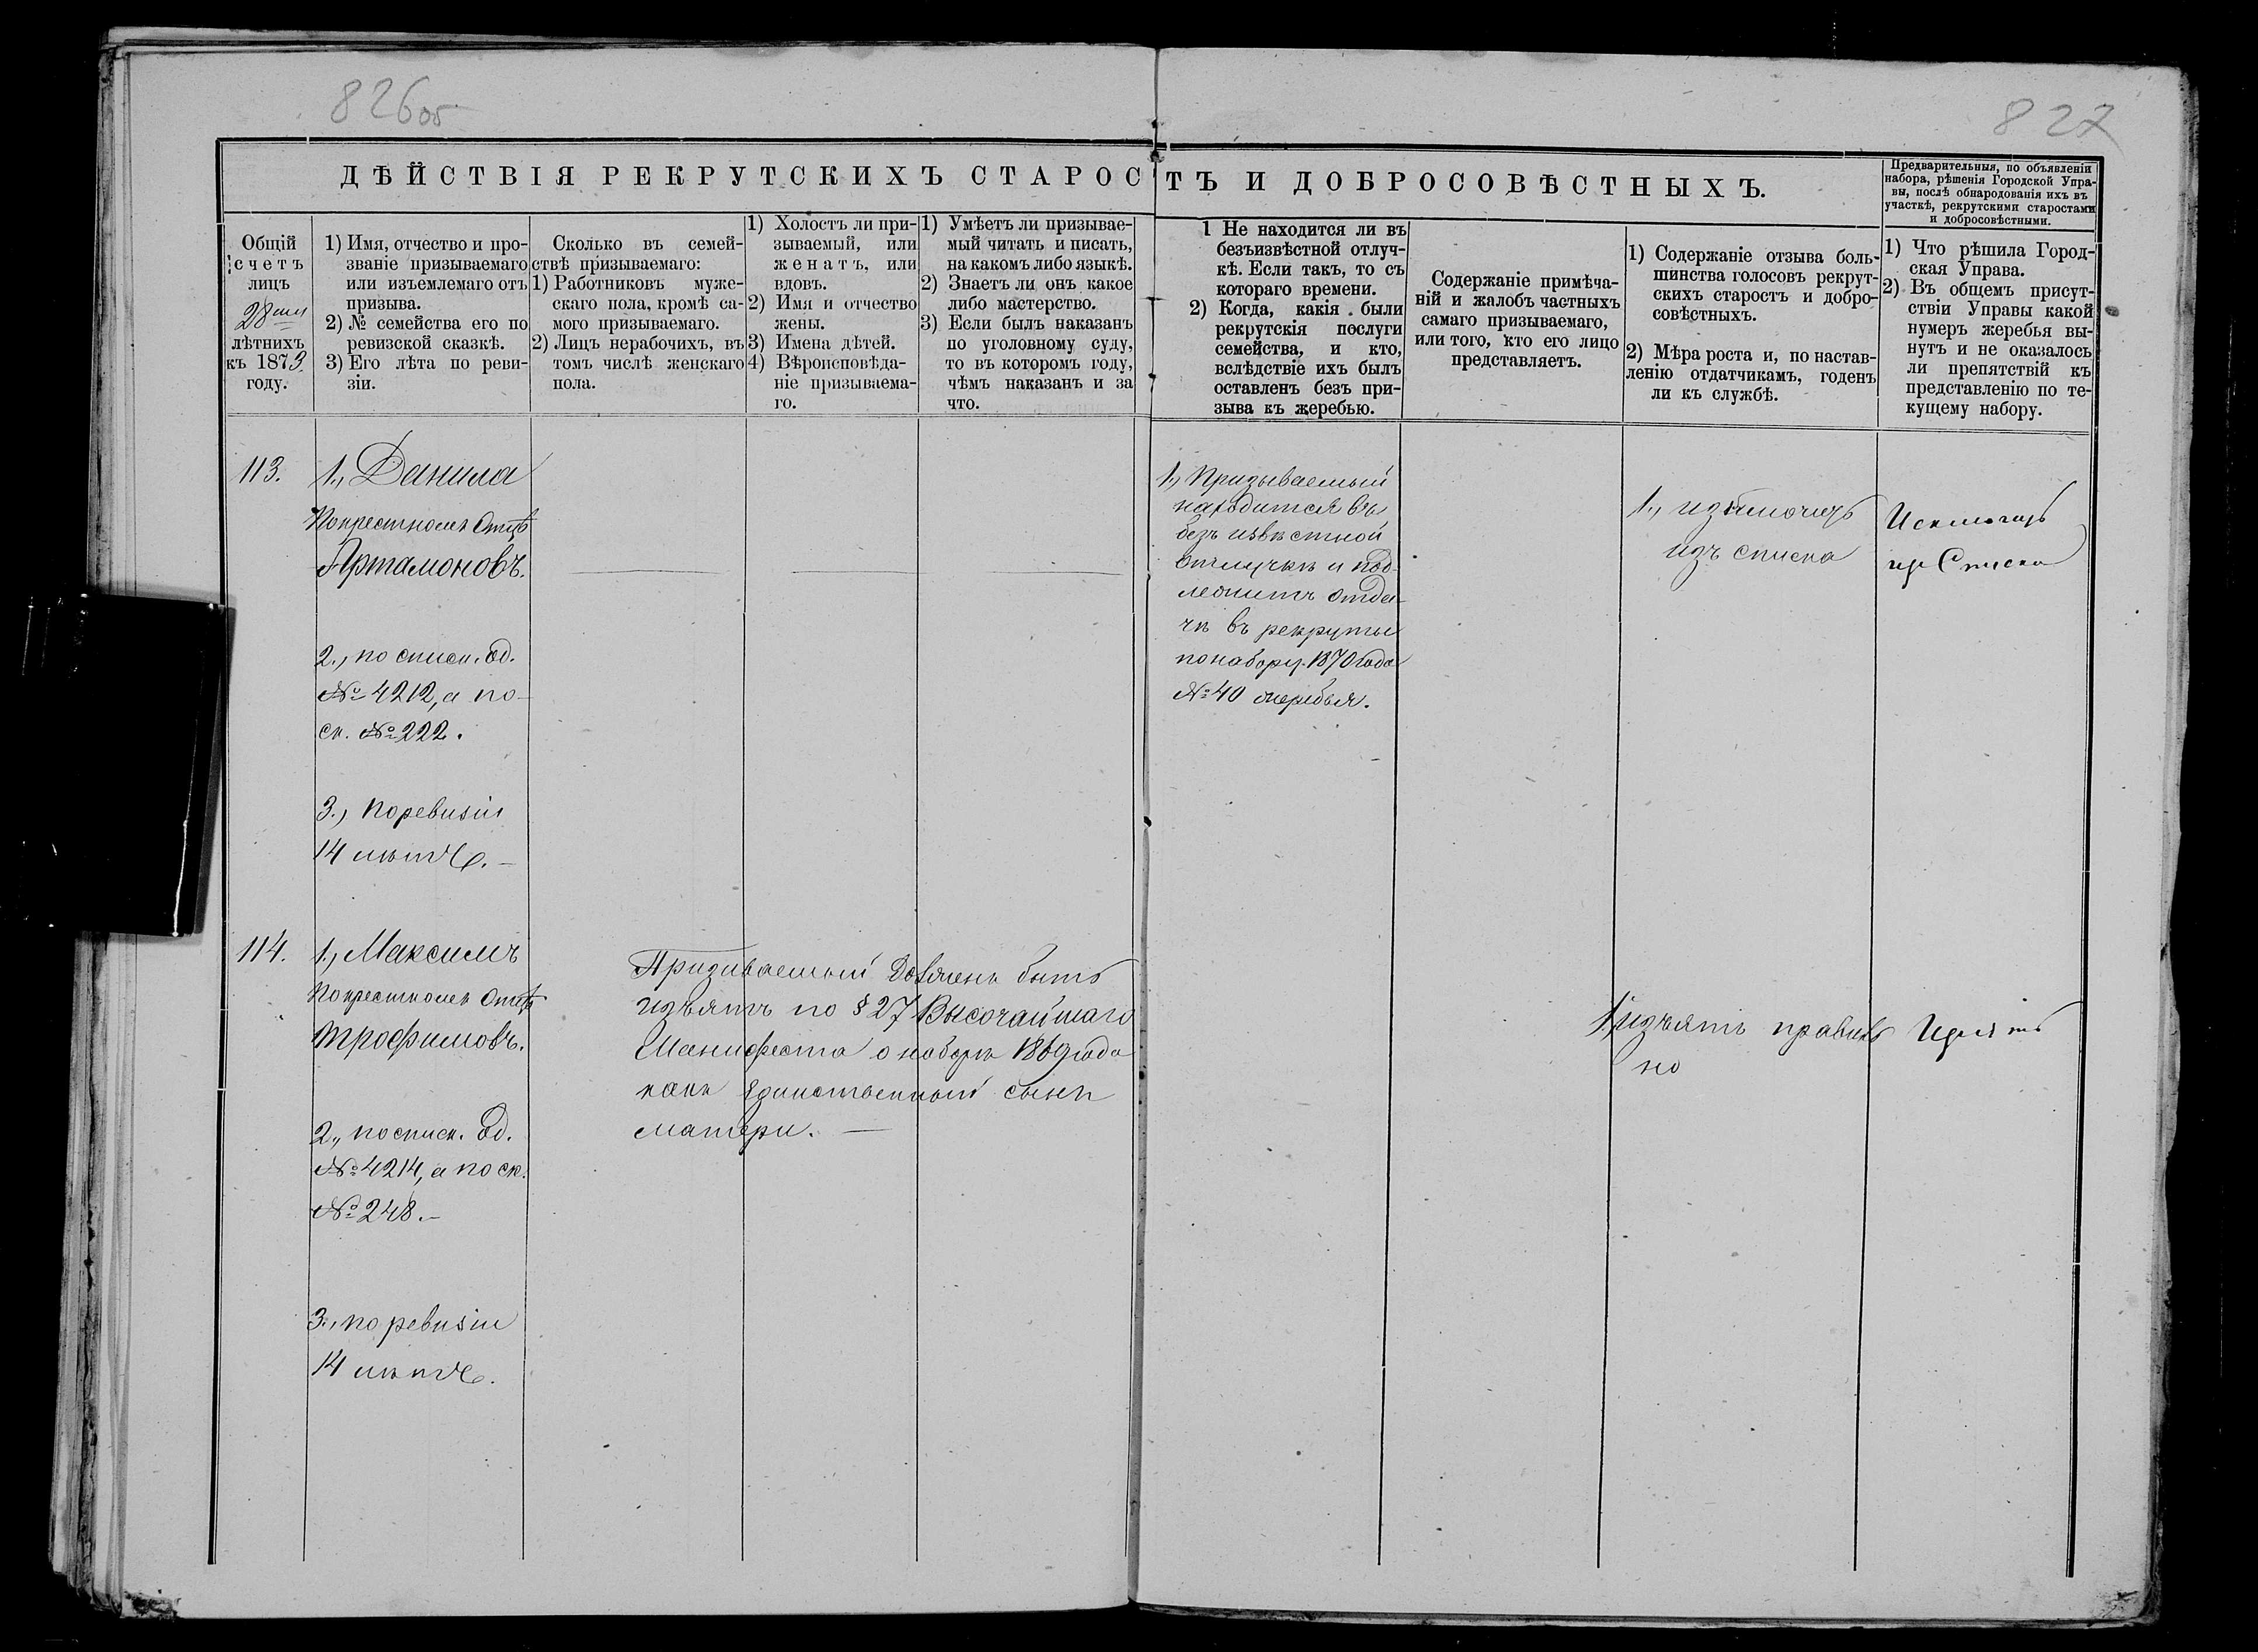 826об
827
ДѢЙСТВІЯ РЕКРУТСКИХЪ СТАРОСТЪ И ДОБРОСОВѢСТНЫХЪ.
Предварительныя, по объявленіи
набора, рѣшенія Городской Упра-
вы, послѣ обнародованія ихъ въ
участкѣ, рекрутскими старостами
и добросовѣстными.
Общій
счетъ
лицъ
28ми
лѣтнихъ
къ 1873
году.
1) Имя, отчество и про-
званіе призываемаго
или изъемлемаго отъ
призыва.
2) № семейства его по
ревизской сказкѣ.
3) Его лѣта по реви-
зіи.
Сколько въ семей-
ствѣ призываемаго:
1) Работниковъ муже-
скаго пола, кромѣ са-
мого призываемаго.
2) Лицъ нерабочихъ, въ
томъ числѣ женскаго
пола.
1) Холостъ ли при-
зываемый, или
женатъ, или
вдовъ.
2) Имя и отчество
жены.
3) Имена дѣтей.
4) Вѣроисповѣда-
ніе призываема-
го.
1) Умѣетъ ли призывае-
мый читать и писать,
на какомъ либо языкѣ.
2) Знаетъ ли онъ какое
либо мастерство.
3) Если былъ наказанъ
по уголовному суду,
то въ которомъ году,
чѣмъ наказанъ и за
что.
1 Не находится ли въ
безъизвѣстной отлуч-
кѣ. Если такъ, то съ
котораго времени.
2) Когда, какія были
рекрутскія послуги
семейства, и кто,
вслѣдствіе ихъ былъ
оставленъ безъ при-
зыва къ жеребью.
Содержаніе примѣча-
ній и жалобъ частныхъ
самаго призываемаго,
или того, кто его лицо
представляетъ.
1) Содержаніе отзыва боль-
шинства голосовъ рекрут-
скихъ старостъ и добро-
совѣстныхъ.
2) Мѣра роста и, по настав-
ленію отдатчикамъ, годенъ
ли къ службѣ.
1) Что рѣшила Город-
ская Управа.
2) Въ общемъ присут-
ствіи Управы какой
нумеръ жеребья вы-
нутъ и не оказалось
ли препятствій къ
представленію по те-
кущему набору.
113.
1., Данила
По крестномъ Отцѣ
Артамоновъ.
2., по списк. Об.
№ 4212, а по
ск. № 222.
3., По ревизіи
14 лѣтъ. –
1, Призываемый
находится въ
безъ извѣстной
отлучкѣ и под-
лежитъ отда-
чѣ въ рекруты
по набору 1870 года
№ 40 жеребья.
1., изключить
изъ списка
Исключить
изъ Списка
114.
1., Максимъ
По крестномъ Отцѣ
Трофимовъ.
2., по списк. Об.
№ 4214, а по ск.
№ 248. –
3., по ревизіи
14 лѣтъ.
Призываемый долженъ быть
изъятъ по § 27 Высочайшаго
Манифеста о наборѣ 1869 года
какъ единственный сынъ
матери. —
1, изъятъ правиль
но
Изъять